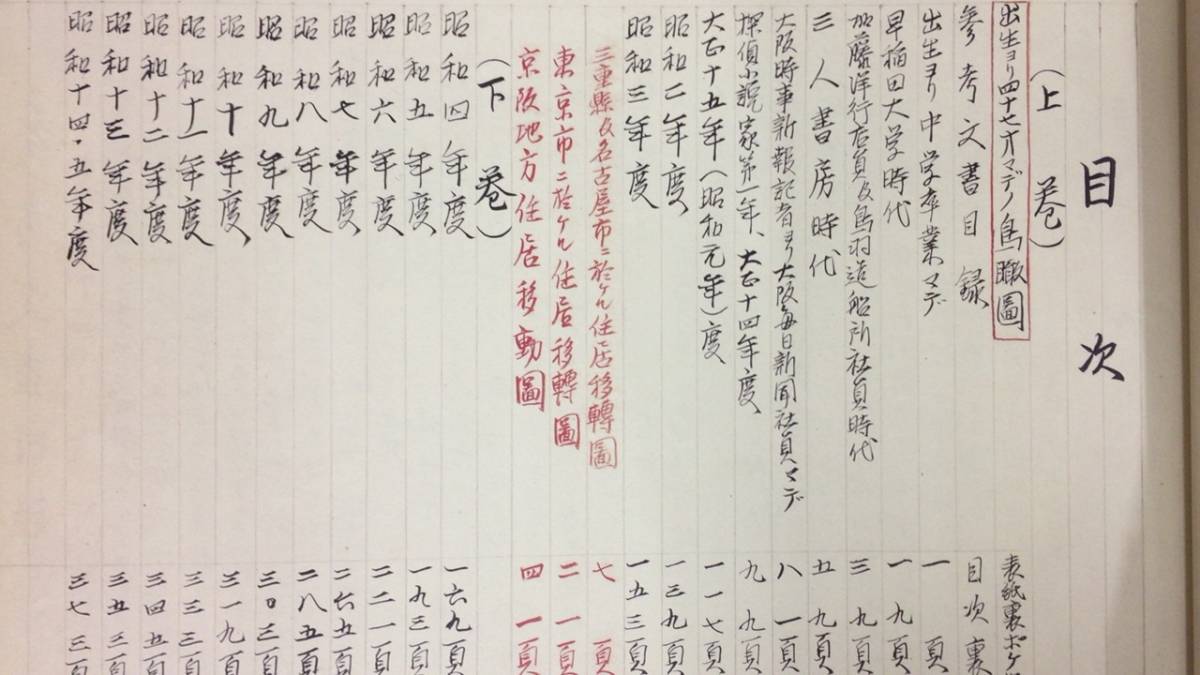 目次
（上巻）
出生ヨリ四十七才マデノ鳥瞰圖 表紙裏ポケッ
参考文書目録 目次裏
出生ヨリ中学卒業マデ 一頁
早稲田大学時代 一九頁
加藤洋行店員及鳥羽造船所社員時代 三九頁
三人書房時代 五九頁
大阪時事新報記者ヨリ大阪毎日新聞社員マデ 八一頁
探偵小説家第一年、大正十四年度、 九九頁
大正十五年（昭和元年）度、 一一七頁
昭和二年度、 一三九頁
昭和三年度 一五三頁
三重縣及名古屋市ニ於ケル住居移轉圖 七頁
東京市ニ於ケル住居移轉圖 二一頁
京阪地方住居移動圖 四一頁
（下巻）
昭和四年度 一六九頁
昭和五年度 一九三頁
昭和六年度 二二一頁
昭和七年度 二六五頁
昭和八年度、 二八五頁
昭和九年度 三〇三頁
昭和十年度、 三一九頁
昭和十一年度、 三三三頁
昭和十二年度 三四五頁
昭和十三年度 三五三頁
昭和十四・五年度 三七三頁